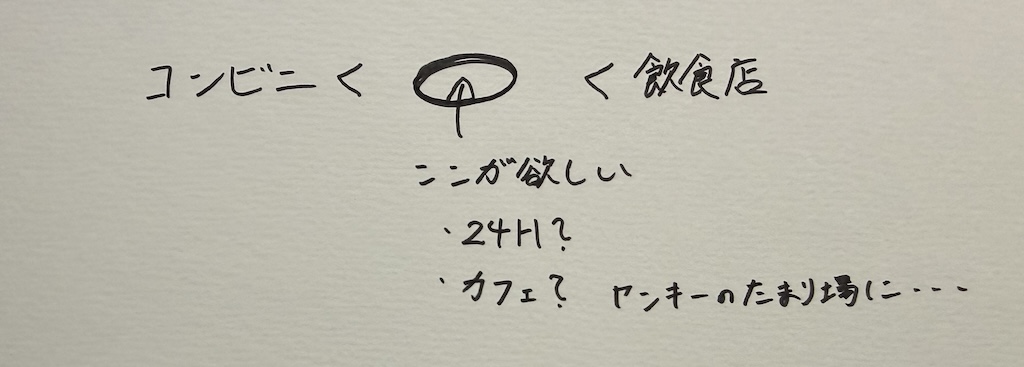 コンビニ < < 飲食店
ここが欲しい
・24H?
・カフェ? ヤンキーのたまり場に・・・